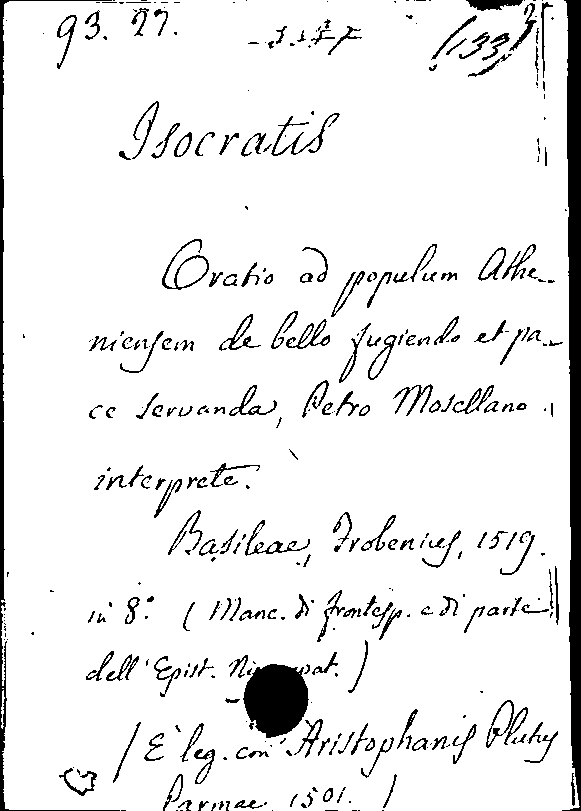 93. 27. (133)
Isocratis
Oratio ad populum Athe-
niensem de bello fugiendo et pa-
ce servanda, Petro Mosellano
interprete.
Basileae, Frobenius, 1519.
in 8.° (Manc. di frontesp. e di parte
dell' Epist.
(È leg. con Aristophanis Plutus
Parmae 1501.)